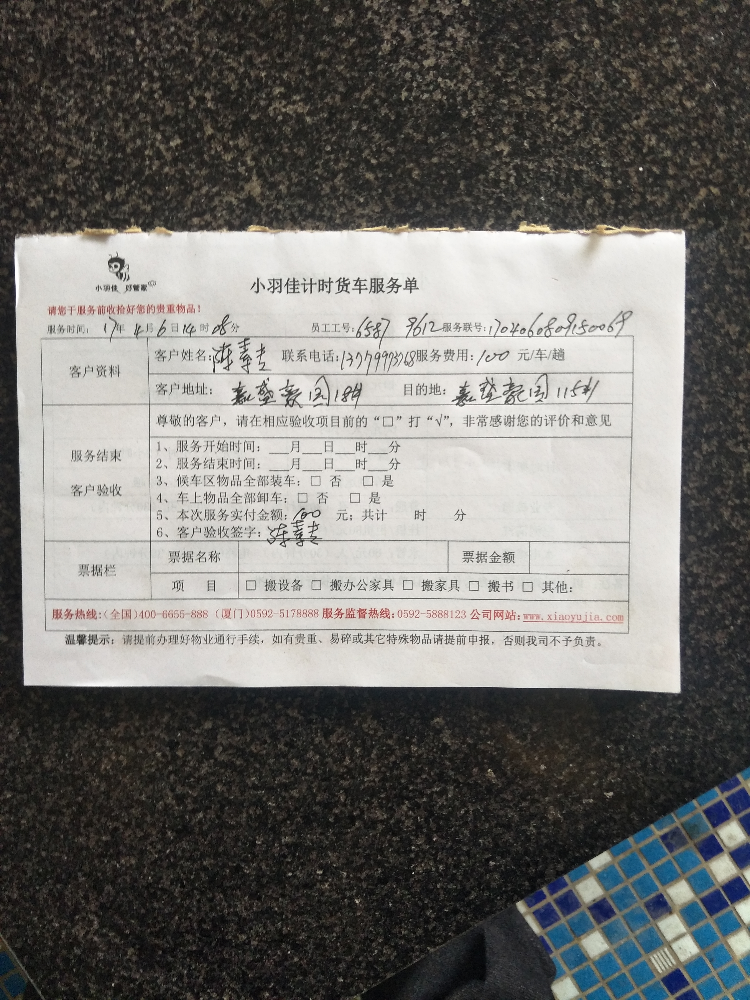 小羽佳 好管家
小羽佳计时货车服务单
请您于服务前收拾好您的贵重物品！
服务时间： 17年 4月 6日 14时 08分 员工工号：6587 9612 服务联号：1704060809150069
客户资料
客户姓名： 联系电话：13779973768 服务费用：100 元/车/趟
客户地址：嘉盛豪园18# 目的地：嘉盛豪园115#
服务结束
客户验收
尊敬的客户，请在相应验收项目前的“□”打“√”，非常感谢您的评价和意见
1、服务开始时间：___月___日___时___分
2、服务结束时间：___月___日___时___分
3、候车区物品全部装车：□ 否 □ 是
4、车上物品全部卸车：□ 否 □ 是
5、本次服务实付金额：100 元；共计 时 分
6、客户验收签字：
票据栏
票据名称 票据金额
项 目 □ 搬设备 □ 搬办公家具 □ 搬家具 □ 搬书 □ 其他：
服务热线：（全国）400-6655-888 （厦门）0592-5178888 服务监督热线：0592-5888123 公司网站：www.xiaoyujia.com
温馨提示：请提前办理好物业通行手续，如有贵重、易碎或其它特殊物品请提前申报，否则我司不予负责。